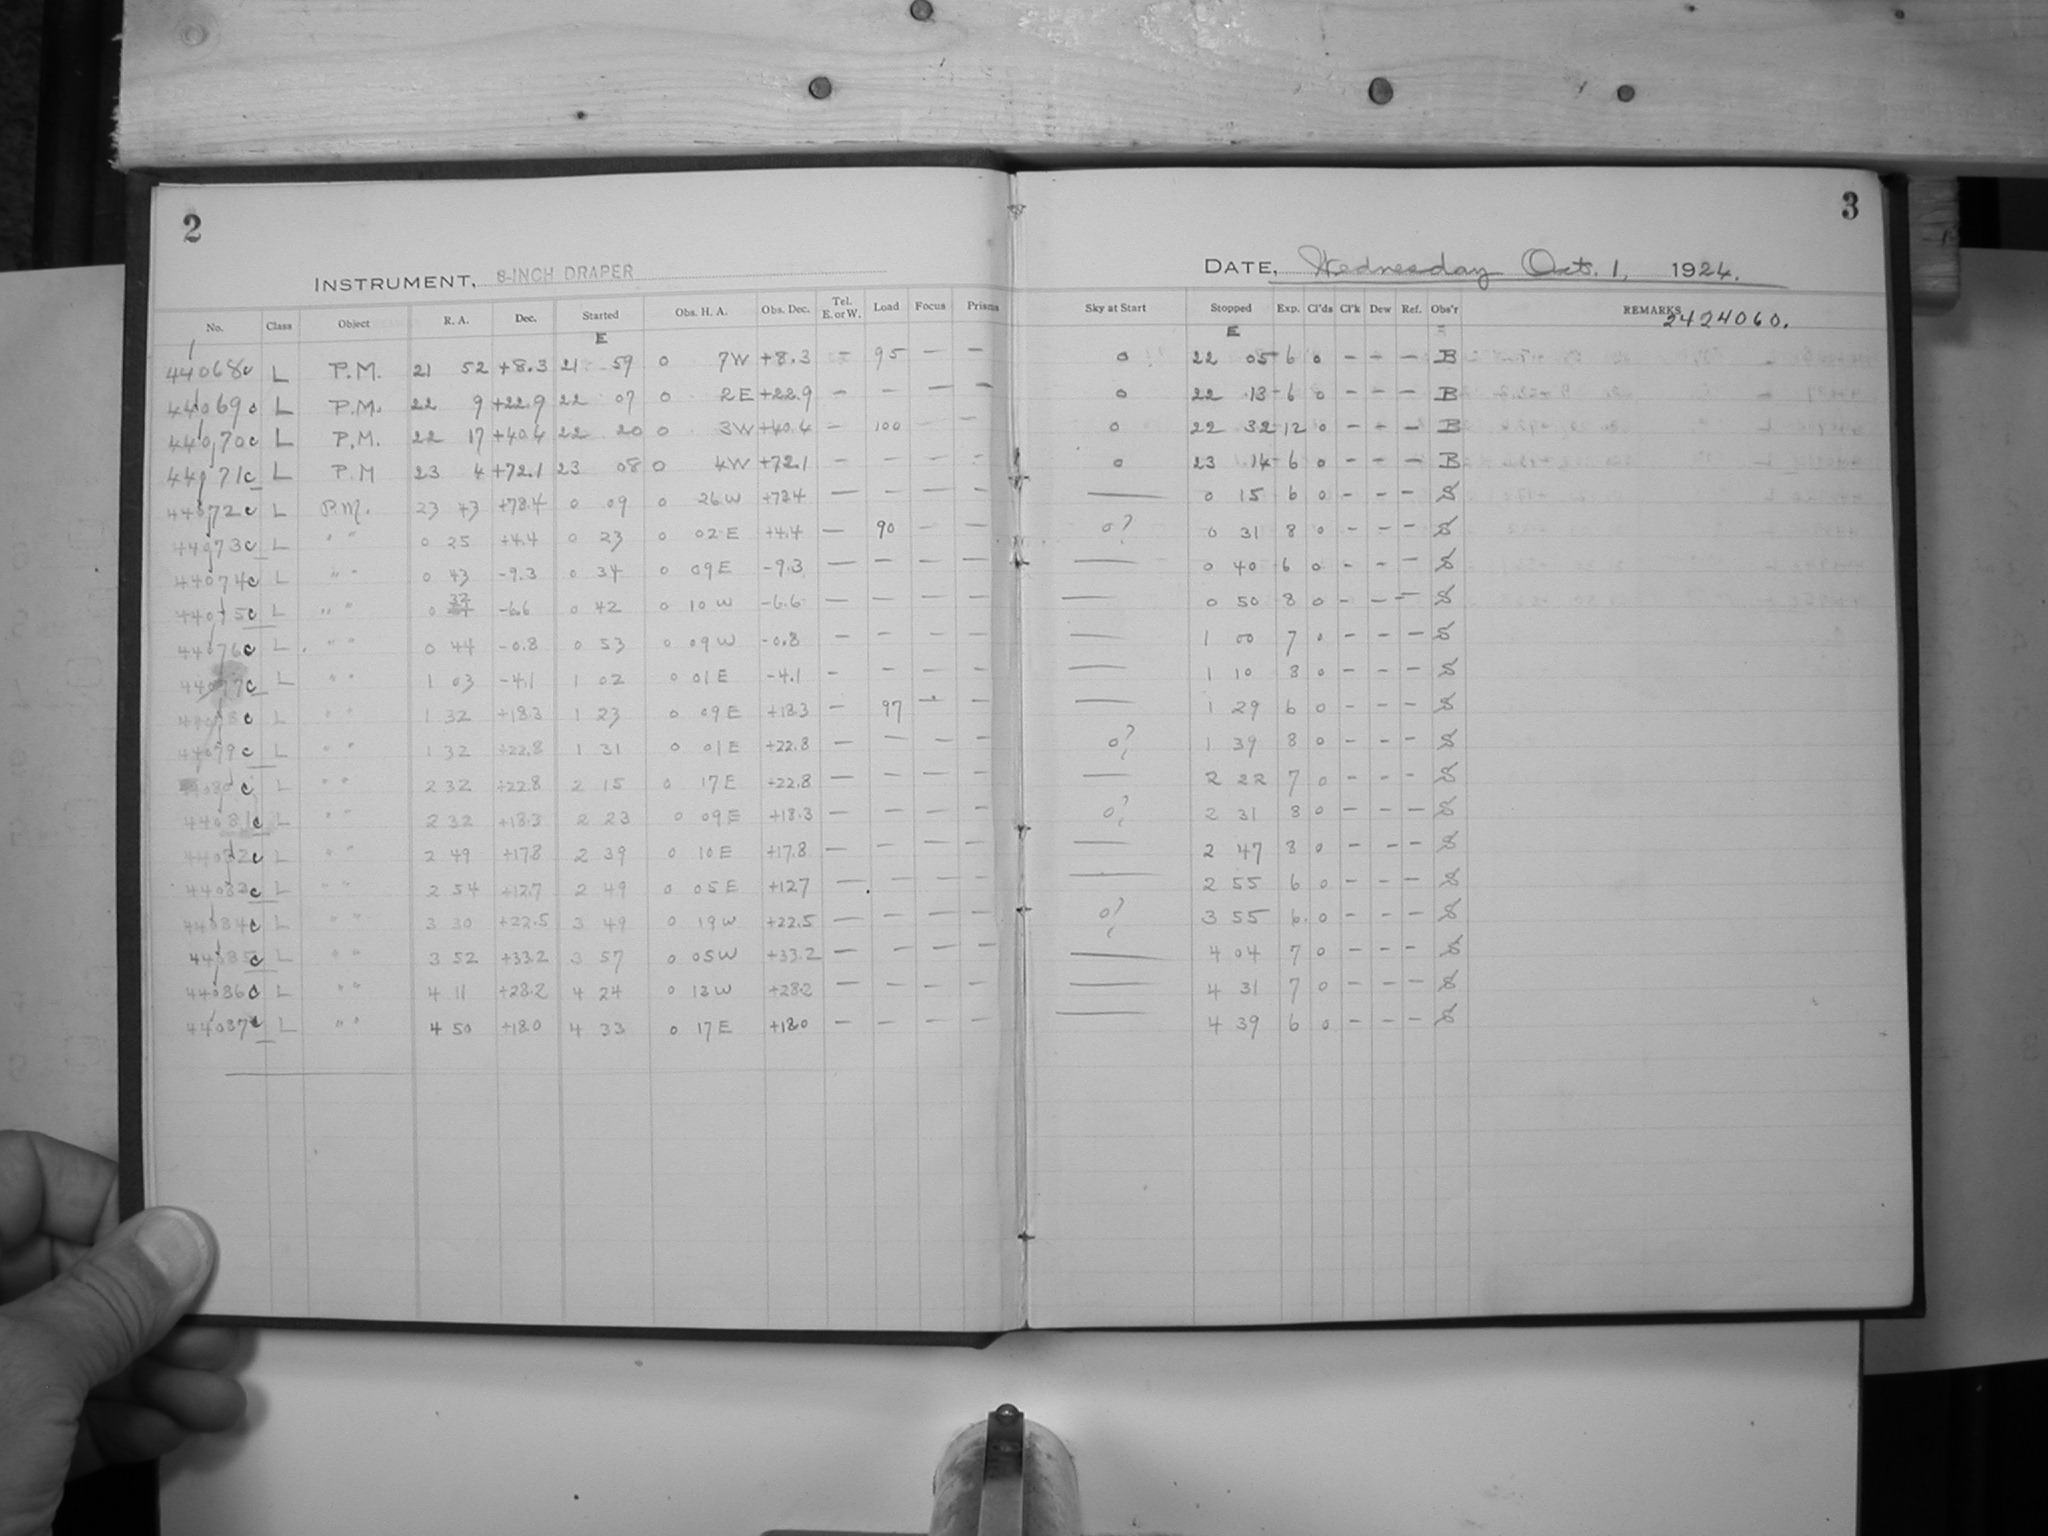 2
3
INSTRUMENT, 8-INCH DRAPER
DATE, Wednesday Oct. 1, 1924.
No. Class Object R. A. Dec. Started Obs. H. A. Obs. Dec. Tel. E. or W. Load Focus Prisms Sky at Start Stopped Exp. Cl'ds Cl'k Dew Ref. Obs'r REMARKS
E E 2424060.
44068c L P.M. 21 52 +8.3 21 59 0 7W +8.3 - 95 — — 0 22 05 6 0 - - — B
44069c L P.M. 22 9 +22.9 22 07 0 2E +22.9 - - — — 0 22 13 6 0 - - — B
44070c L P.M. 22 17 +40.4 22 20 0 3W +40.4 - 100 — — 0 22 32 12 0 - - — B
44071c L P.M 23 4 +72.1 23 08 0 4W +72.1 - - - - 0 23 14 6 0 - - — B
44072c L P.M. 23 43 +78.4 0 09 0 26W — — — — —— 0 15 6 0 - - - S
44073c L " " 0 25 +4.4 0 23 0 02E +4.4 — 90 — — 0? 0 31 8 0 - - - S
44074c L " " 0 43 -9.3 0 34 0 09E -9.3 — — — — —— 0 40 6 0 - - — S
44075c L " " 0 32 -6.6 0 42 0 10W -6.6 — — — — —— 0 50 8 0 - - — S
44076c L " " 0 44 -0.8 0 53 0 09W -0.8 - - — — —— 1 00 7 0 - - — S
44077c L " " 1 03 -4.1 1 02 0 01E -4.1 - - — — —— 1 10 8 0 - - - S
44078c L " " 1 32 +18.3 1 23 0 09E +18.3 - 97 — — —— 1 29 6 0 - - - S
44079c L " " 1 32 +22.8 1 31 0 01E +22.8 — - — — 0? 1 39 8 0 - - - S
44080c L " " 2 32 +22.8 2 15 0 17E +22.8 — — — — —— 2 22 7 0 - - - S
44081c L " " 2 32 +18.3 2 23 0 09E +18.3 — — — — 0? 2 31 8 0 - - — S
44082c L " " 2 49 +17.8 2 39 0 10E +17.8 — — — — —— 2 47 8 0 - - - S
44083c L " " 2 54 +12.7 2 49 0 05E +12.7 — — — — —— 2 55 6 0 - - - S
44084c L " " 3 30 +22.5 3 49 0 19W +22.5 — — — — 0? 3 55 6 0 - - - S
44085c L " " 3 52 +33.2 3 57 0 05W +33.2 — — — — —— 4 04 7 0 - - - S
44086c L " " 4 11 +28.2 4 24 0 13W +28.2 — — — — —— 4 31 7 0 - - - S
44087c L " " 4 50 +18.0 4 33 0 17E +18.0 — — — — —— 4 39 6 0 - - - S